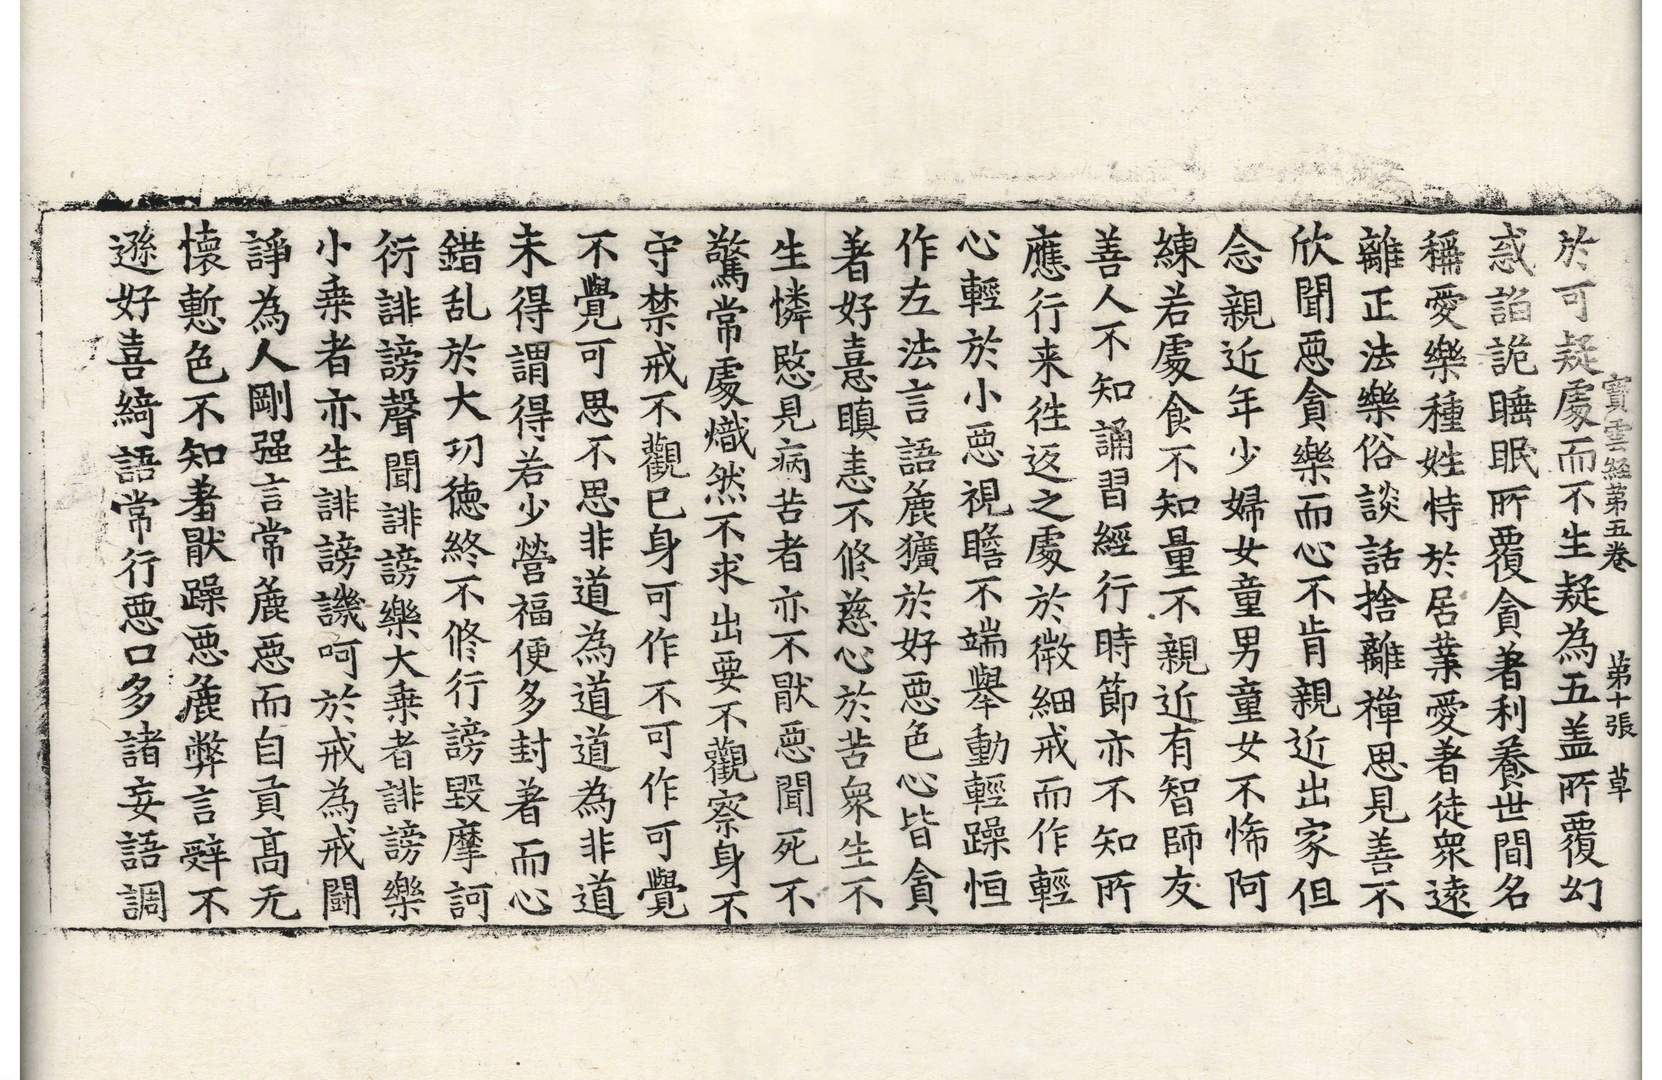 寶雲經第五卷 第十張 草
於可疑處而不生疑為五盖所覆幻
惑諂詭睡眠所覆貪著利養世間名
稱愛樂種姓恃於居業愛著徒衆遠
離正法樂俗談話捨離禪思見善不
欣聞惡貪樂而心不肯親近出家但
念親近年少婦女童男童女不悕阿
練若處食不知量不親近有智師友
善人不知誦習經行時節亦不知所
應行来徃返之處於微細戒而作輕
心輕於小惡視瞻不端舉動輕躁恒
作左法言語麁獷於好惡色心皆貪
著好憙瞋恚不修慈心於苦衆生不
生憐愍見病苦者亦不猒惡聞死不
驚常處熾然不求出要不觀察身不
守禁戒不觀己身可作不可作可覺
不覺可思不思非道為道道為非道
未得謂得若少營福便多封著而心
錯乱於大功德終不修行謗毀摩訶
衍誹謗聲聞誹謗樂大乗者誹謗樂
小乗者亦生誹謗譏呵於戒為戒鬪
諍為人剛强言常麁惡而自貢高无
懷慙色不知著猒躁惡麁弊言辝不
遜好喜綺語常行惡口多諸妄語調